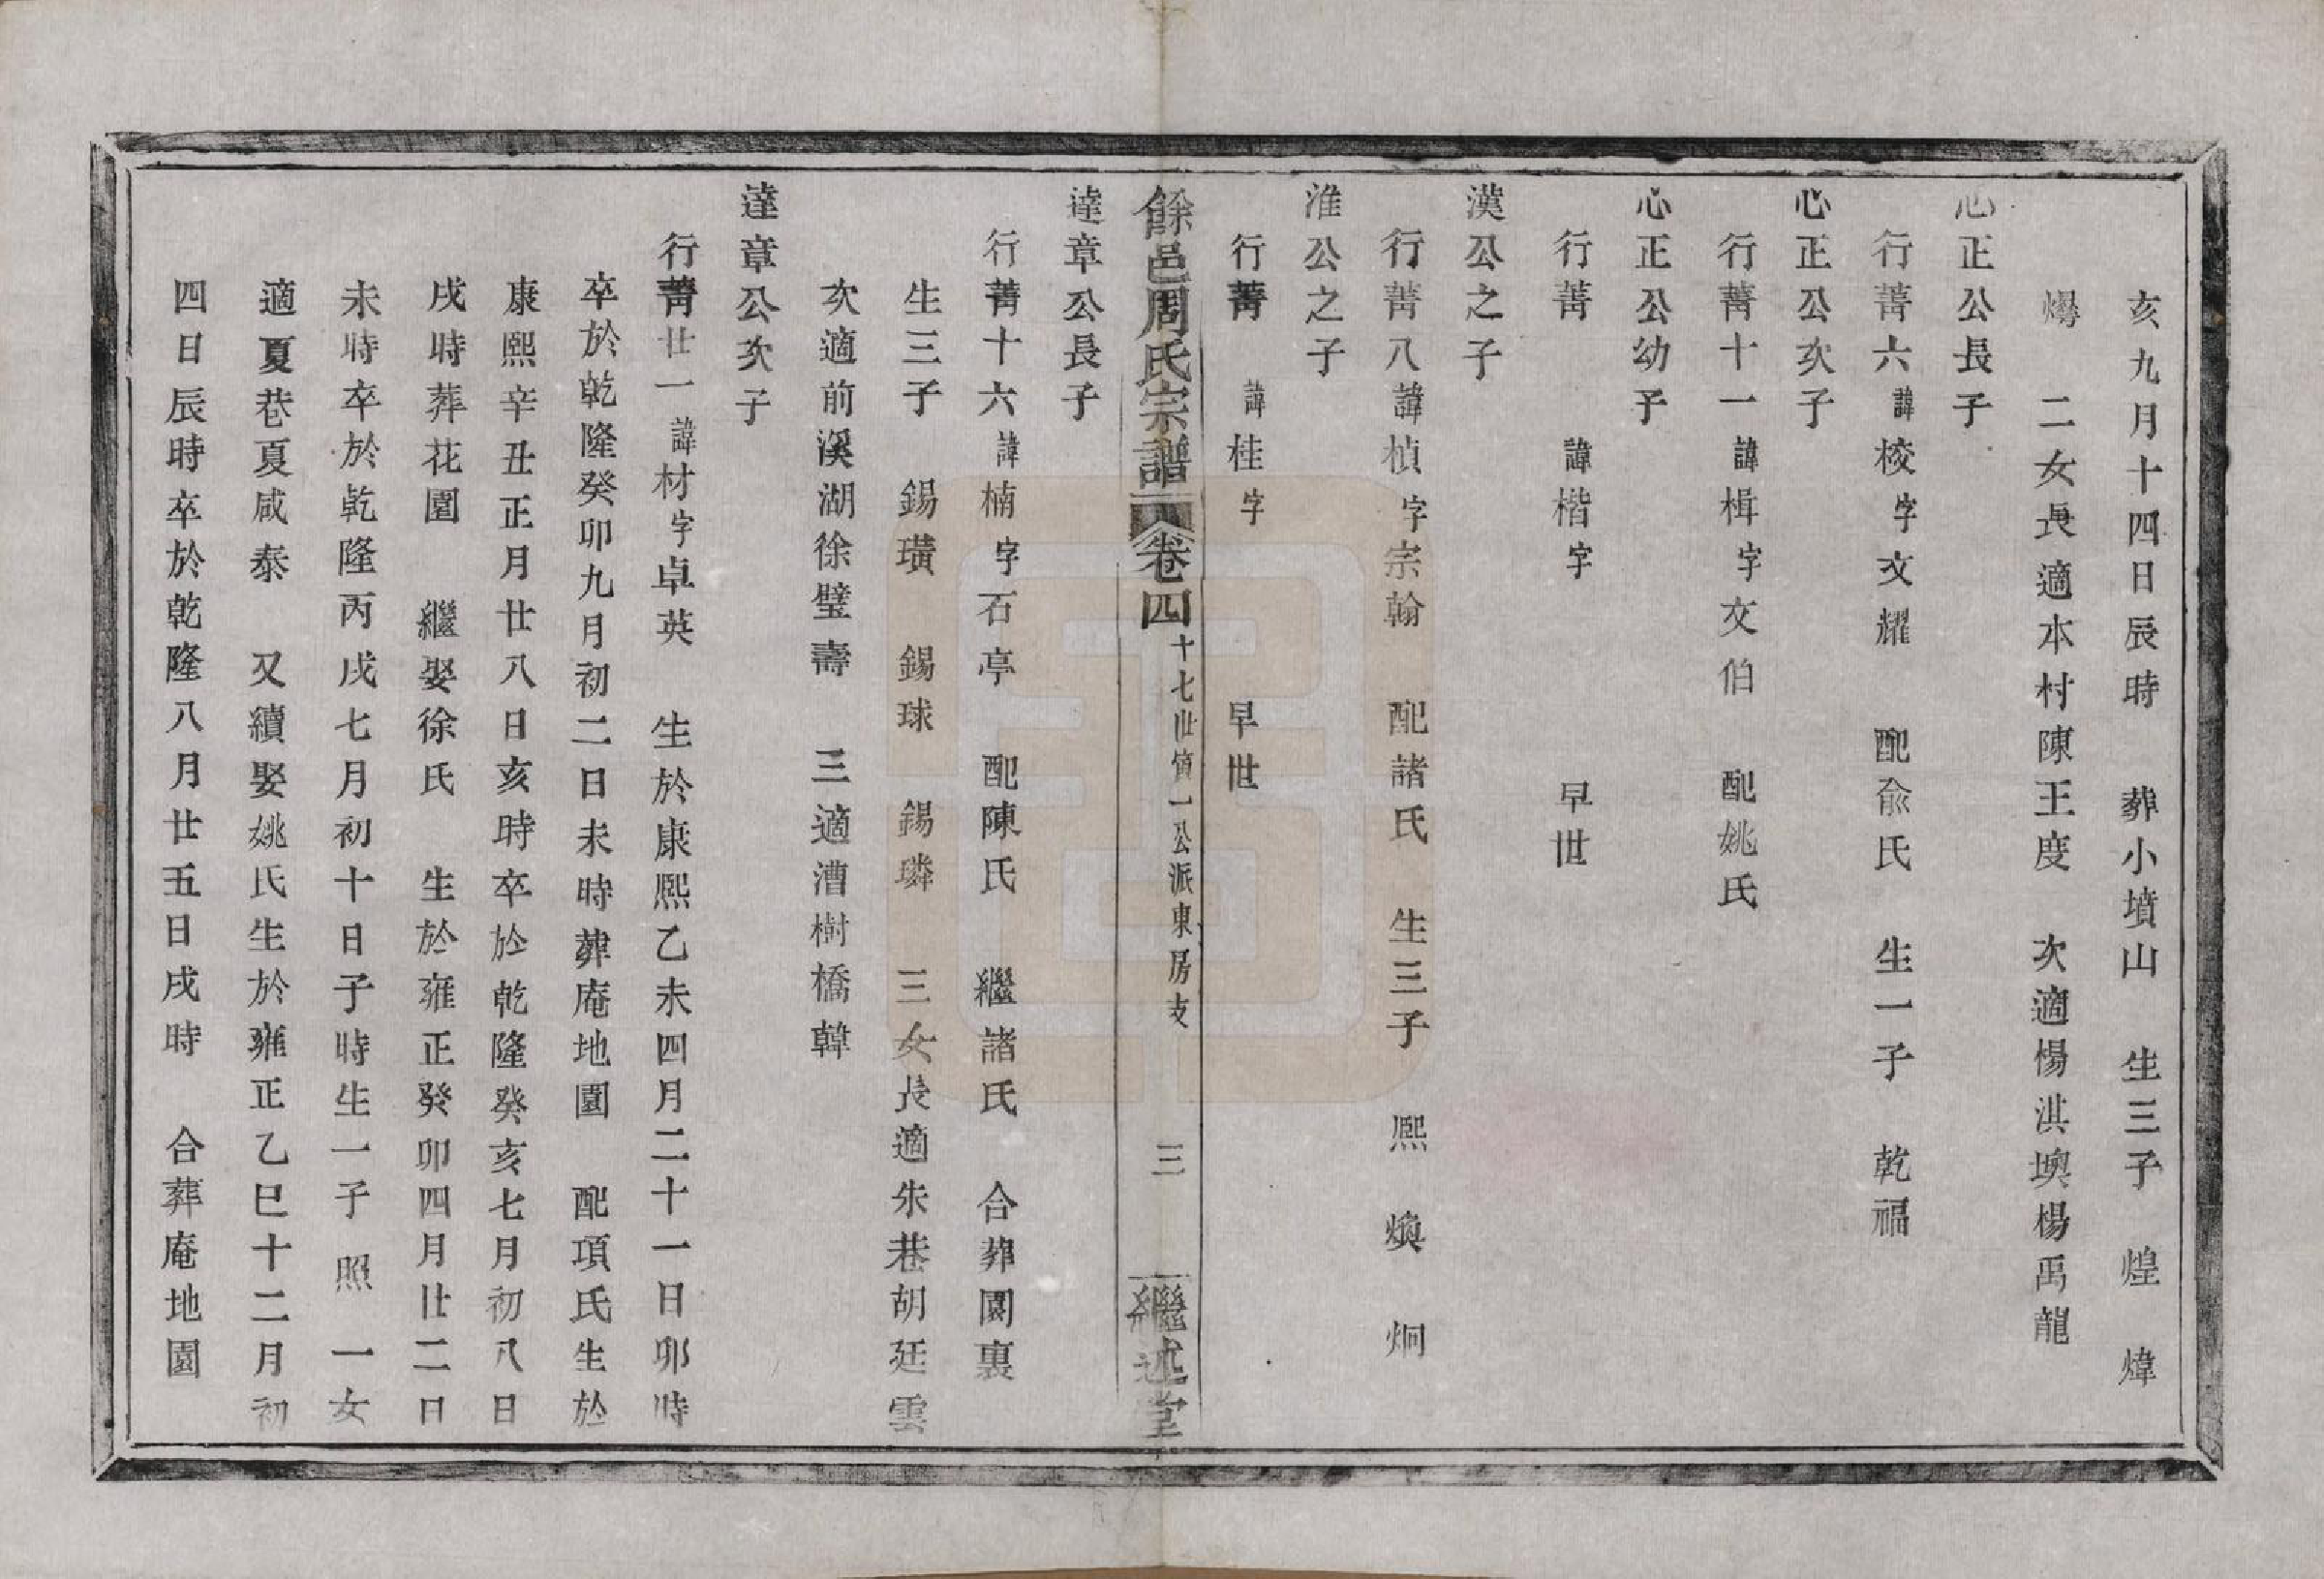 亥九月十四日辰時　葬小墳山　生三子　煌　煒
二女長適本村陳王度　次適楊洪墺楊禹龍
心正公長子
行菁六諱棱字文耀　配兪氏　生一子　乾福
心正公次子
行菁十一諱楫字文伯　配姚氏
心正公幼子
行菁　諱楷字　早世
漢公之子
行菁八諱楨字宗翰　配諸氏　生三子　熙　煥　炯
淮公之子
行菁　諱桂字　早世
餘邑周氏宗譜　卷四　十七世質一公派東房支　三　繼述堂
達章公長子
行菁十六諱楠字石亭　配陳氏　繼諸氏　合葬園裏
生三子　錫璜　錫球　錫璘　三女長適朱巷胡廷雲
次適前溪湖徐璧壽　三適漕樹橋韓
達章公次子
行菁廿一諱材字卓英　生於康熙乙未四月二十一日卯時
卒於乾隆癸卯九月初二日未時葬庵地園　配項氏生於
康熙辛丑正月廿八日亥時卒於乾隆癸亥七月初八日
戌時葬花園　繼娶徐氏　生於雍正癸卯四月廿二日
未時卒於乾隆丙戌七月初十日子時生一子　照　一女
適夏巷夏咸泰　又續娶姚氏生於雍正乙巳十二月初
四日辰時卒於乾隆八月廿五日戌時　合葬庵地園